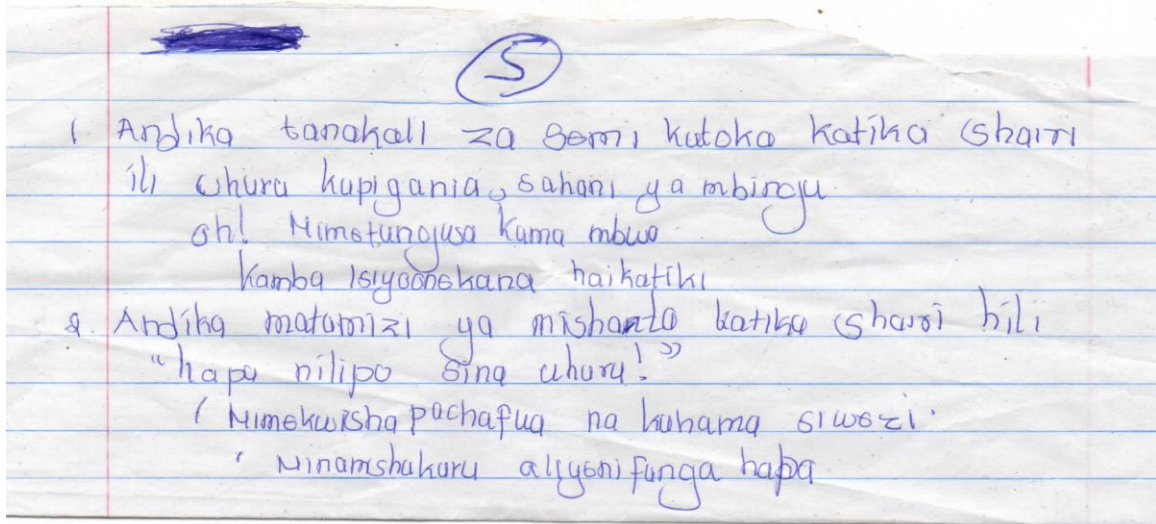 5
1 Andika tanakali za semi kutoka katika shairi
ili uhuru kupigania, sahani ya mbingu
oh! Nimefungwa kama mbwa
Kamba isiyoonekana haikatiki
2. Andika matumizi ya mishanto katika shairi hili
"hapa nilipo sina uhuru!"
' Nimekwisha pachafua na kuhama siwezi.
' Ninamshukuru aliyenifunga hapa